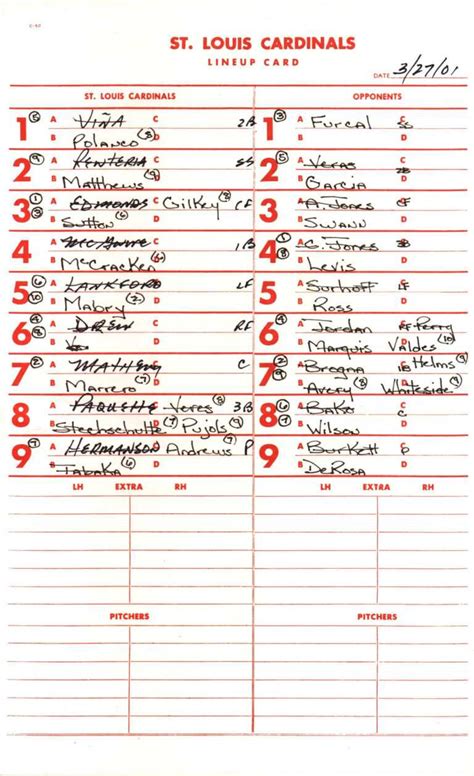 C-42
ST. LOUIS CARDINALS
LINEUP CARD
DATE 3/27/01
ST. LOUIS CARDINALS OPPONENTS
1 (5) A VIÑA C 2B
B Polanco (3) D
1 A Furcal C SS
B D
2 (9) A RENTERIA C SS
B Matthews (8) D
2 (5) A Veras C 2B
B Garcia D
3 (1) (3) A EDMONDS C Gilkey (8) CF
B Sutton (6) D
3 A A. Jones C
B Swann D
4 A McGwire C 1B
B McCracken (6) D
4 A C. Jones C 3B
B Levis D
5 (6) (10) A LANKFORD C LF
B Mabry (2) D
5 A Surhoff C LF
B Ross D
6 (4) (8) A DREW C RF
B D
6 A Jordan C RF Perry
B Marquis D Valdes (10)
7 (2) A MATHENY C C
B Marrero (7) D
7 A Brogna C 1B Helms (9)
B Avery (8) D Whiteside (9)
8 A PAQUETTE C Veres (8) 3B
B Stechschulte (7) D Pujols (9)
8 A Bako C
B Wilson D
9 (7) A HERMANSON C Andrews P
B Tabaka (6) D
9 A Burkett C P
B DeRosa D
LH EXTRA RH LH EXTRA RH
PITCHERS PITCHERS